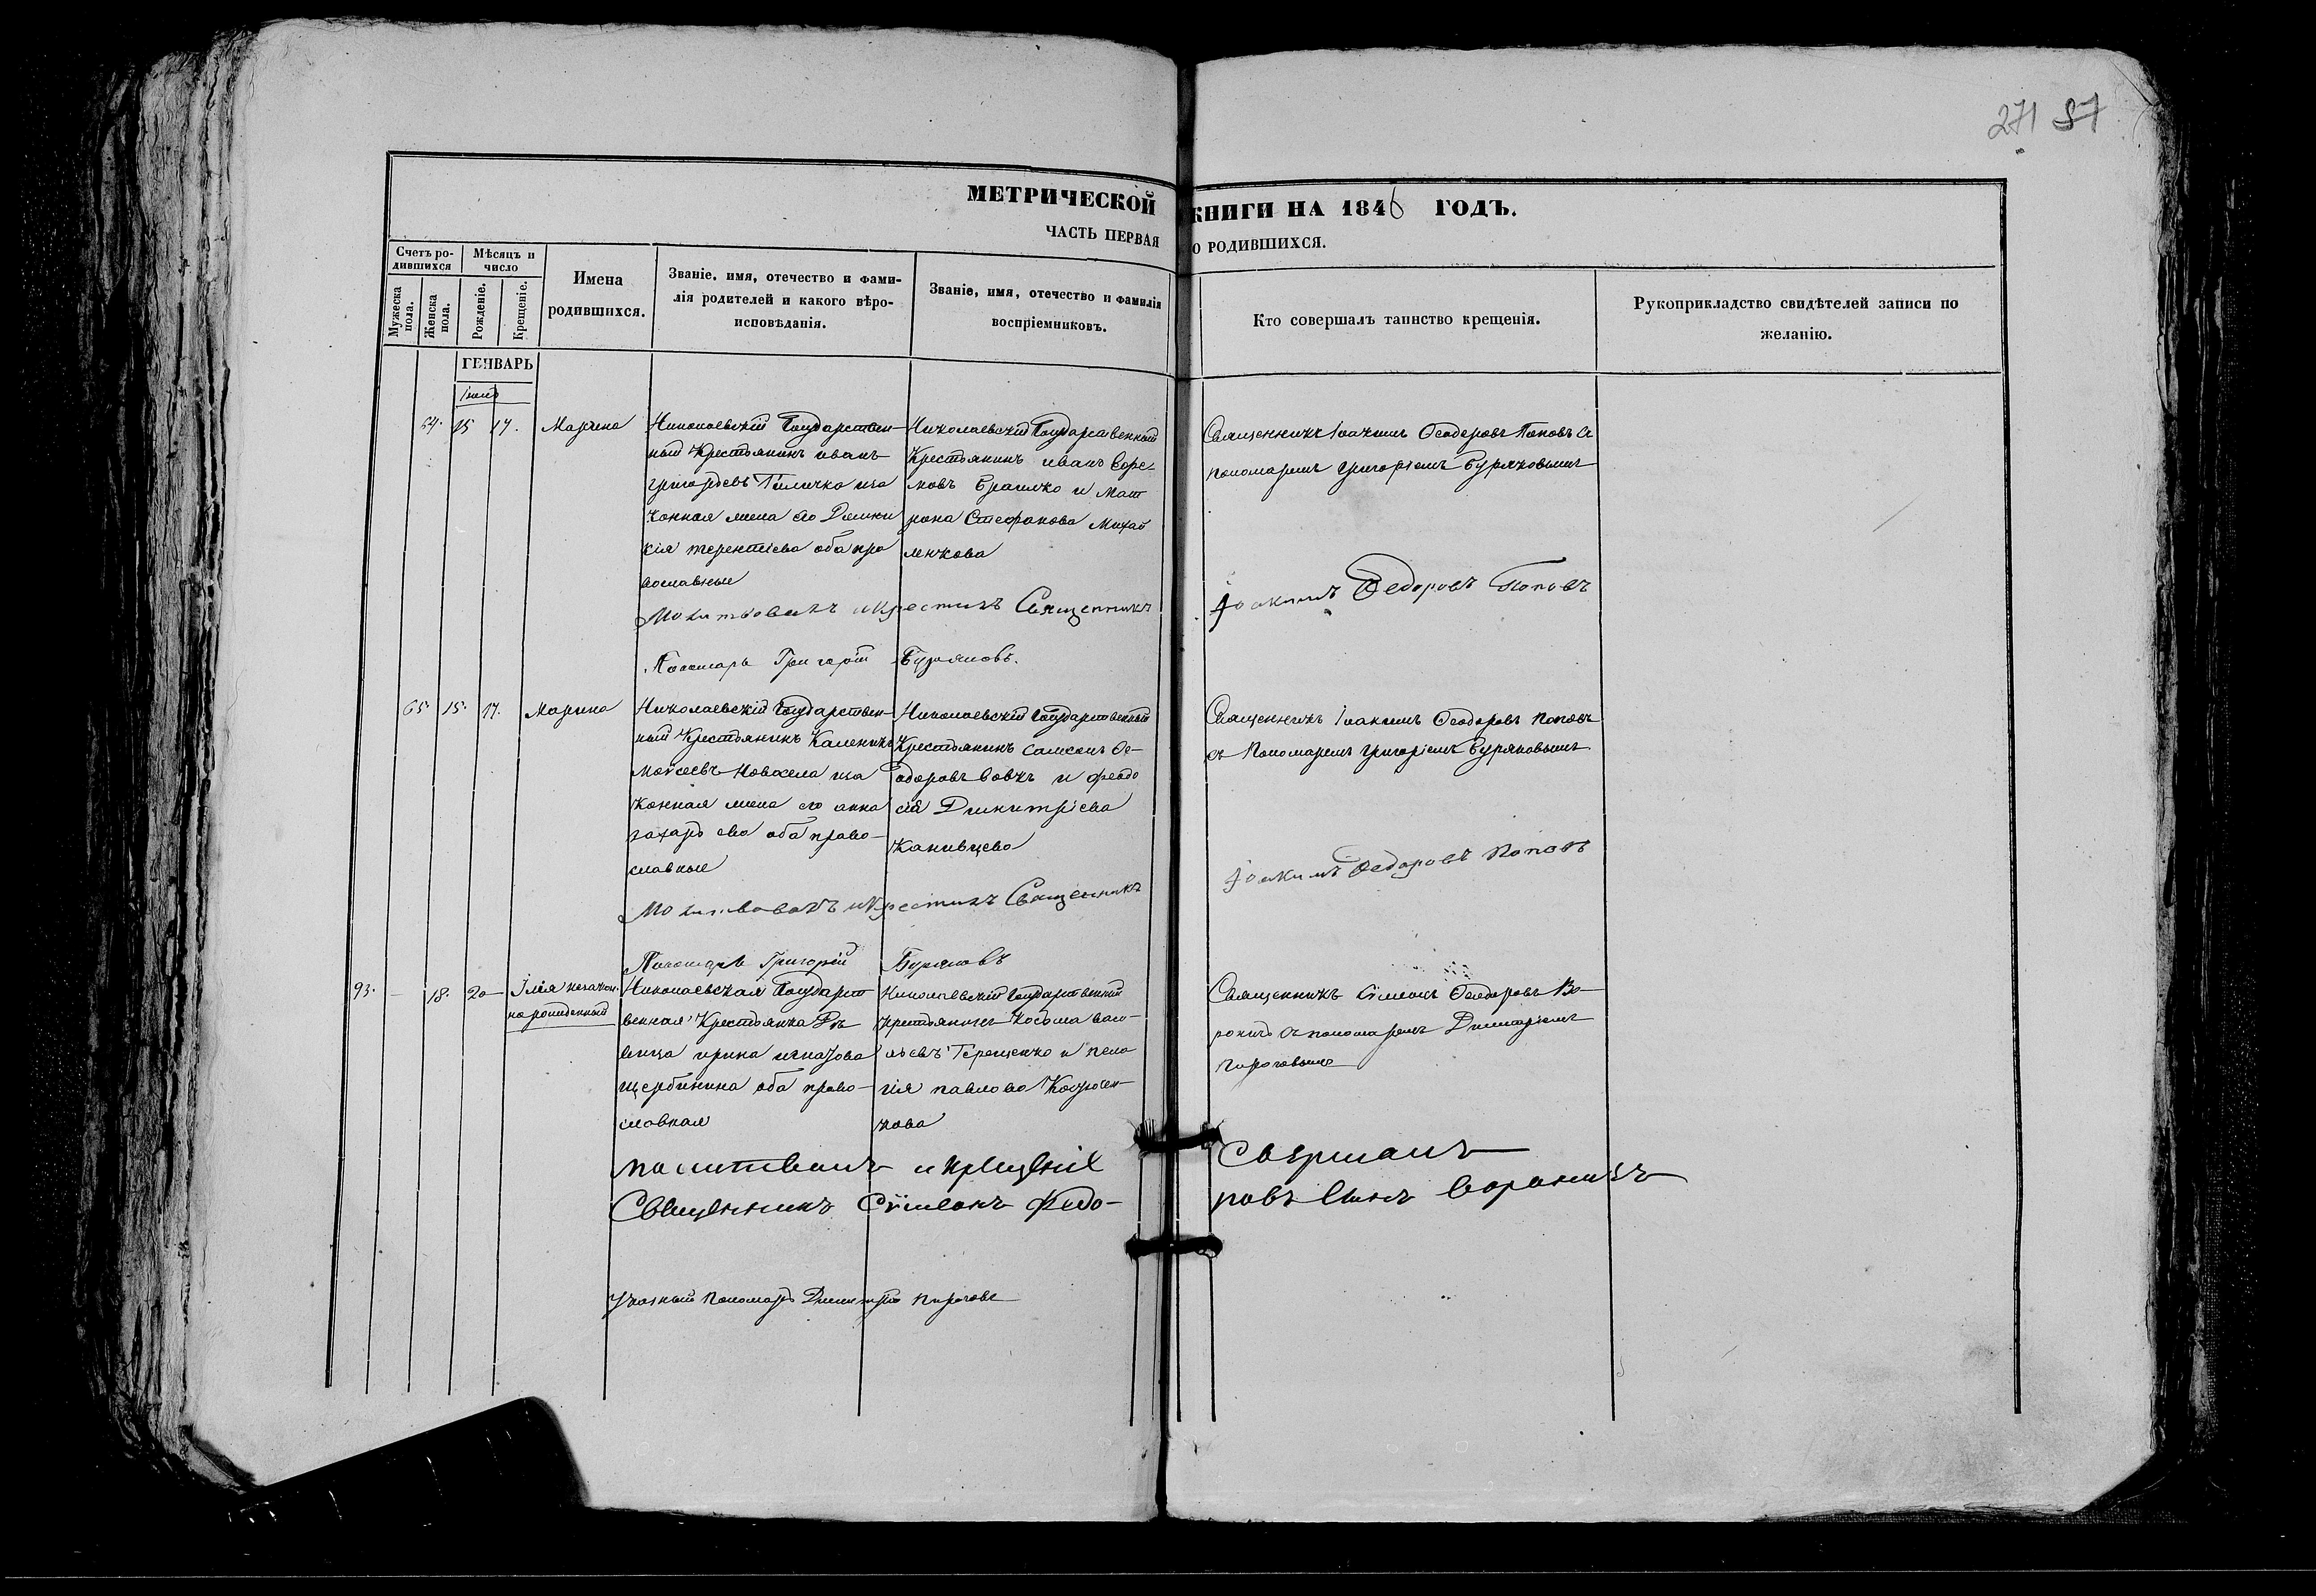 271 87
МЕТРИЧЕСКОЙ КНИГИ НА 1846 ГОДЪ.
ЧАСТЬ ПЕРВАЯ О РОДИВШИХСЯ.
Счетъ ро-
дившихся
Мужеска пола.
Женска пола.
Мѣсяцъ и
число
Рожденіе.
Крещеніе.
Имена
родившихся.
Званіе, имя, отечество и фами-
лія родителей и какого вѣро-
исповѣданія.
Званіе, имя, отечество и фамилія
воспріемниковъ.
Кто совершалъ таинство крещенія.
Рукоприкладство свидѣтелей записи по
желанію.
ГЕНВАРЬ
64. 15 17. Марина
Николаевскій Государствен-
ный Крестьянинъ иванъ
григорьевъ иза
конная жена его Домни
кія терентіева оба пра
вославные
Николаевскій Государственный
Крестьянинъ иванъ Ефре-
мовъ и Мат
рона Стефанова Михай
ленкова
Священникъ Іоакимъ Феодоровъ Поповъ съ
пономаремъ григоріемъ Буряковымъ
Молитвовалъ и крестилъ Священникъ
Іоакимъ Федоровъ Поповъ
Пономарь Григорій Буряковъ.
65. 15. 17. Марина
Николаевскій Государствен-
ный Крестьянинъ Каленикъ
Моѵсеевъ иза
конная жена его анна
захарьева оба право-
славные
Николаевскій Государственный
Крестьянинъ Самсонъ Фе-
одоровъ Вовкъ и феодо
сія Димитріева
Канивцева
Священникъ Іоакимъ Феодоровъ Поповъ
съ Пономаремъ григоріемъ Буряковымъ
Молитвовалъ и крестилъ Священникъ
Іоакимъ Федоровъ Поповъ
Пономарь Григорій Буряковъ
93. – 18. 20 Ілія незакон
норожденный
Николаевская Государст
венная Крестьянка Дѣ
вица ирина игнатова
щербинина оба право-
славная
Николаевскій Государственный
крестьянинъ Косьма васи-
льевъ Терещенко и пела
гія павлова
кова
Священникъ Сімеонъ Феодоровъ Во-
роничъ съ пономаремъ Димитріемъ
Пироговымъ
молитвалъ и крещеніе Совершалъ
Священникъ Сѵмеонъ Федо-
ровъ Сынъ Вороничъ
Указный Пономарь Димитрій Пироговъ